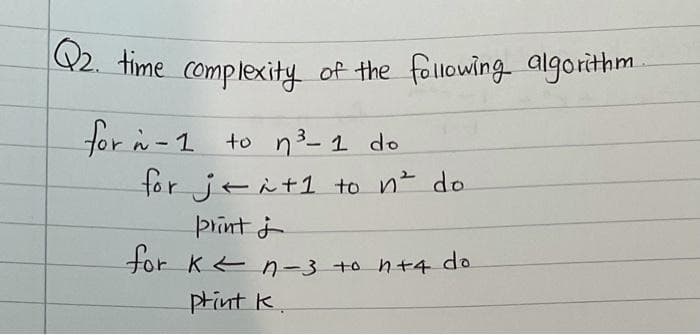 Q2. time complexity of the following algorithm.
for i-1 to n³-1 do
for j←i+1 to n² do
print j
for k← n-3 to n+4 do
print k.